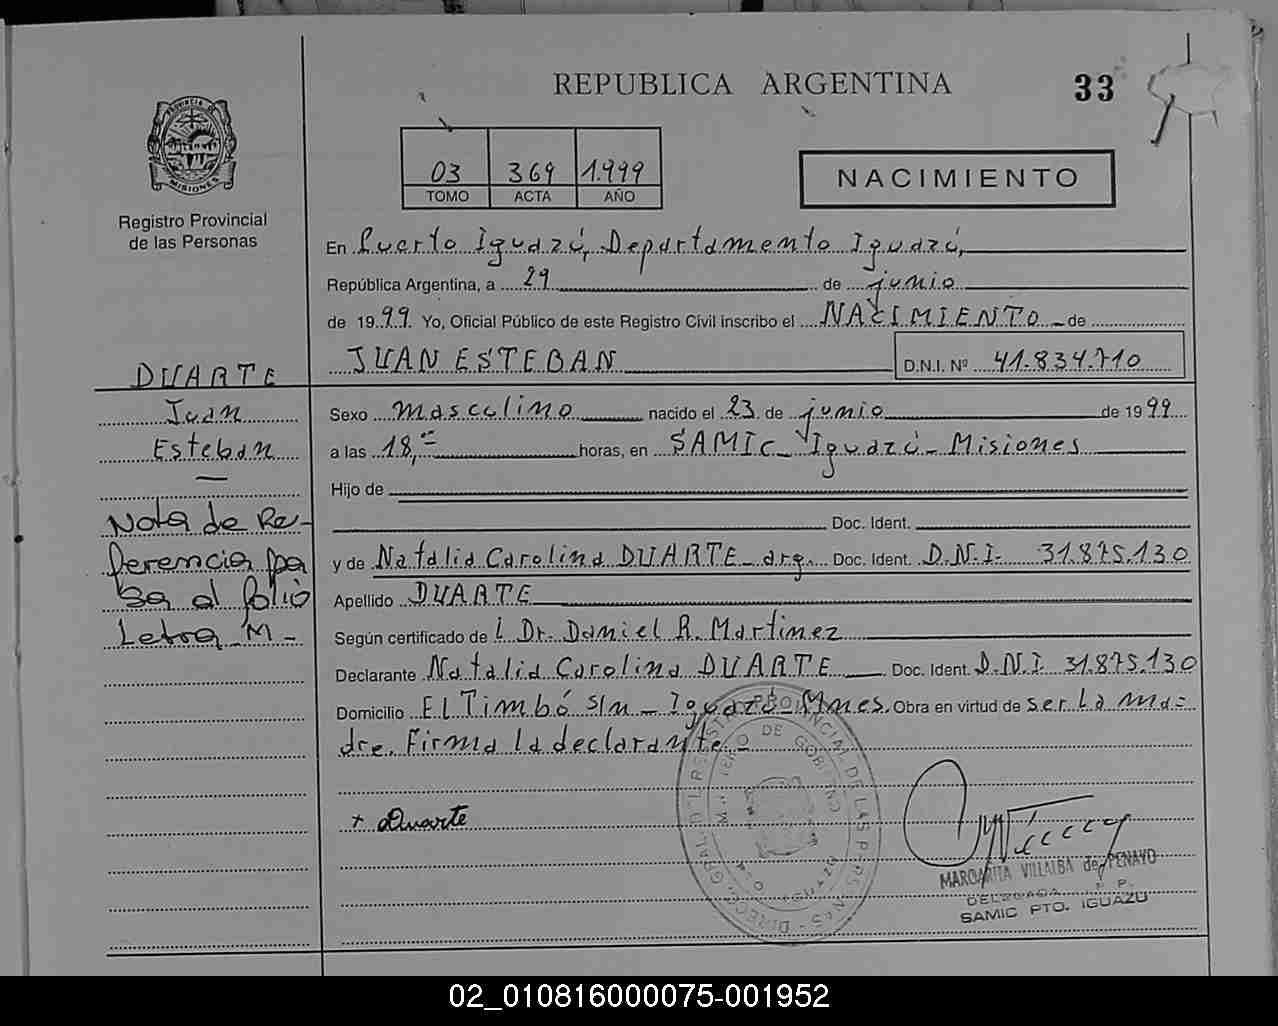 REPUBLICA ARGENTINA
33
PROVINCIA DE
MISIONES
Registro Provincial
de las Personas
03 369 1.999
TOMO ACTA AÑO
NACIMIENTO
En Puerto Iguazú, Departamento Iguazú,
República Argentina, a 29 de junio
de 1999. Yo, Oficial Público de este Registro Civil inscribo el NACIMIENTO de
JUAN ESTEBAN D.N.I. Nº 41.834.710
DUARTE
Juan
Esteban
Nota de Re-
ferencia pa
sa al folio
Letra M -
Sexo masculino nacido el 23 de junio de 1999
a las 18,= horas, en SAMIC - Iguazú - Misiones
Hijo de
Doc. Ident.
y de Natalia Carolina DUARTE - arg. Doc. Ident. D.N.I. 31.875.130
Apellido DUARTE
Según certificado de L Dr. Daniel R. Martinez
Declarante Natalia Carolina DUARTE Doc. Ident. D.N.I. 31.875.130
Domicilio El Timbó S/n - Iguazú - Mnes. Obra en virtud de ser la ma=
dre. Firma la declarante -
+ Duarte
MARGARITA VILLALBA de PENAYO
DELEGADA
SAMIC PTO. IGUAZU
02_010816000075-001952